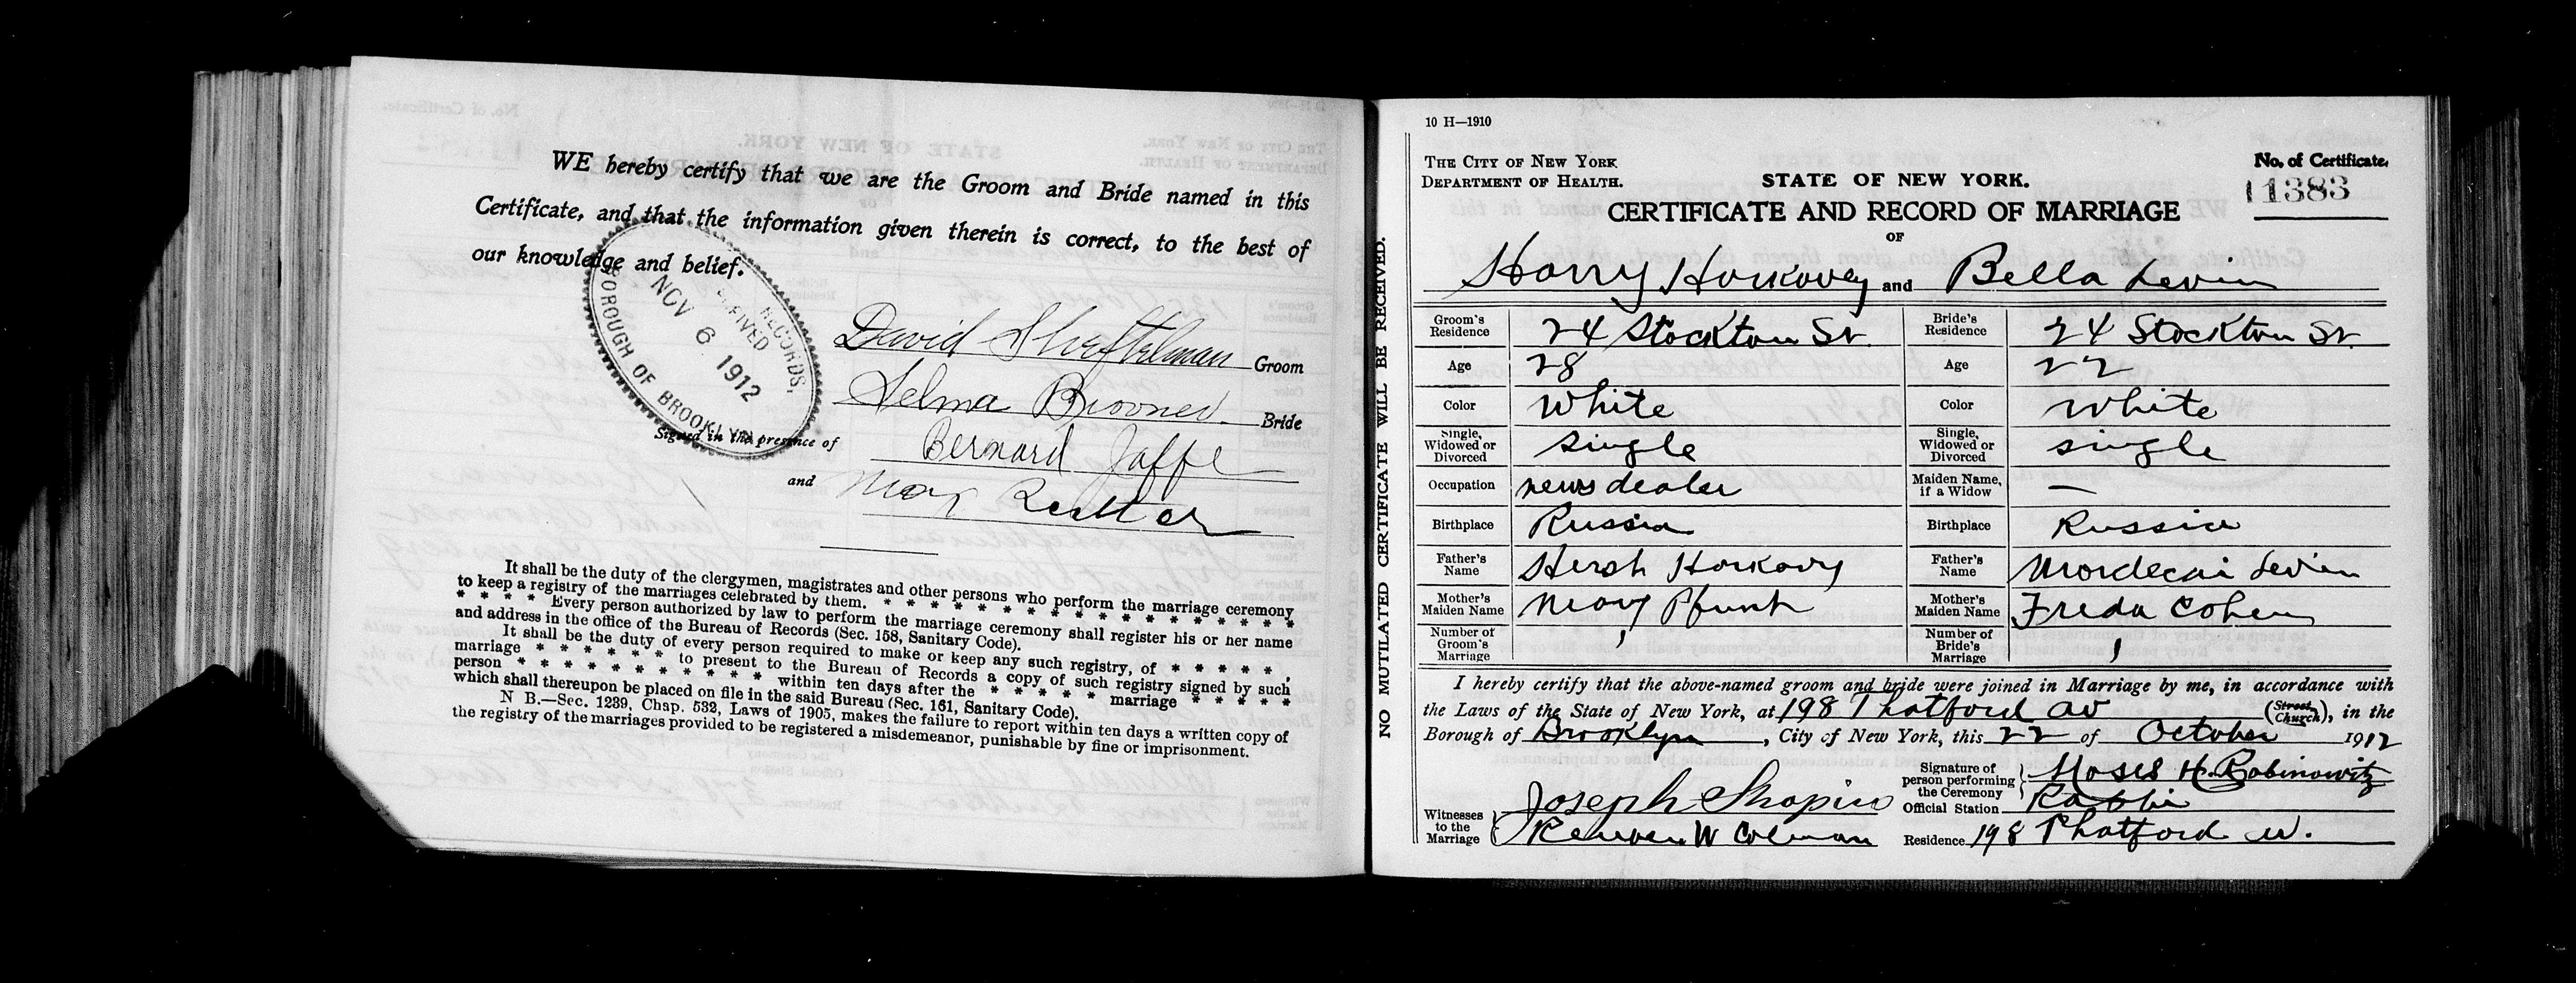 WE hereby certify that we are the Groom and Bride named in this
Certificate, and that the information given therein is correct, to the best of
our knowledge and belief.
RECORDS,
RECEIVED
NOV 6 1912
BOROUGH OF BROOKLYN
David Sheftelman Groom
Selma Broones Bride
Signed in the presence of
Bernard Jaffe
and Max
It shall be the duty of the clergymen, magistrates and other persons who perform the marriage ceremony
to keep a registry of the marriages celebrated by them. * * * * * * * * * * * * * * * * * *
* * * * Every person authorized by law to perform the marriage ceremony shall register his or her name
and address in the office of the Bureau of Records (Sec. 158, Sanitary Code).
It shall be the duty of every person required to make or keep any such registry, of * * * * *
marriage * * * * * * to present to the Bureau of Records a copy of such registry signed by such
person * * * * * * * * * * * within ten days after the * * * * * marriage * * * * *
which shall thereupon be placed on file in the said Bureau (Sec. 161, Sanitary Code).
N B.—Sec. 1239, Chap. 532, Laws of 1905, makes the failure to report within ten days a written copy of
the registry of the marriages provided to be registered a misdemeanor, punishable by fine or imprisonment.
NO MUTILATED CERTIFICATE WILL BE RECEIVED.
10 H—1910
THE CITY OF NEW YORK
DEPARTMENT OF HEALTH.
STATE OF NEW YORK.
No. of Certificate.
11383
CERTIFICATE AND RECORD OF MARRIAGE
OF
Harry Horkovey and Bella Levin
Groom's Residence 24 Stockton St. Bride's Residence 24 Stockton St.
Age 28 Age 22
Color White Color White
Single, Widowed or Divorced single Single, Widowed or Divorced single
Occupation newsdealer Maiden Name, if a Widow —
Birthplace Russia Birthplace Russia
Father's Name Hersh Horkovy Father's Name Mordecai Levin
Mother's Maiden Name Mary Pfunt Mother's Maiden Name Freda Cohen
Number of Groom's Marriage 1 Number of Bride's Marriage 1
I hereby certify that the above-named groom and bride were joined in Marriage by me, in accordance with
the Laws of the State of New York, at 198 Thatford av (Street, Church), in the
Borough of Brooklyn, City of New York, this 22 of October 1912
Signature of person performing the Ceremony Moses H. Rabinowitz
Official Station Rabbi
Witnesses to the Marriage Joseph Shapiro
Reuben W Colman
Residence 198 Thatford av.